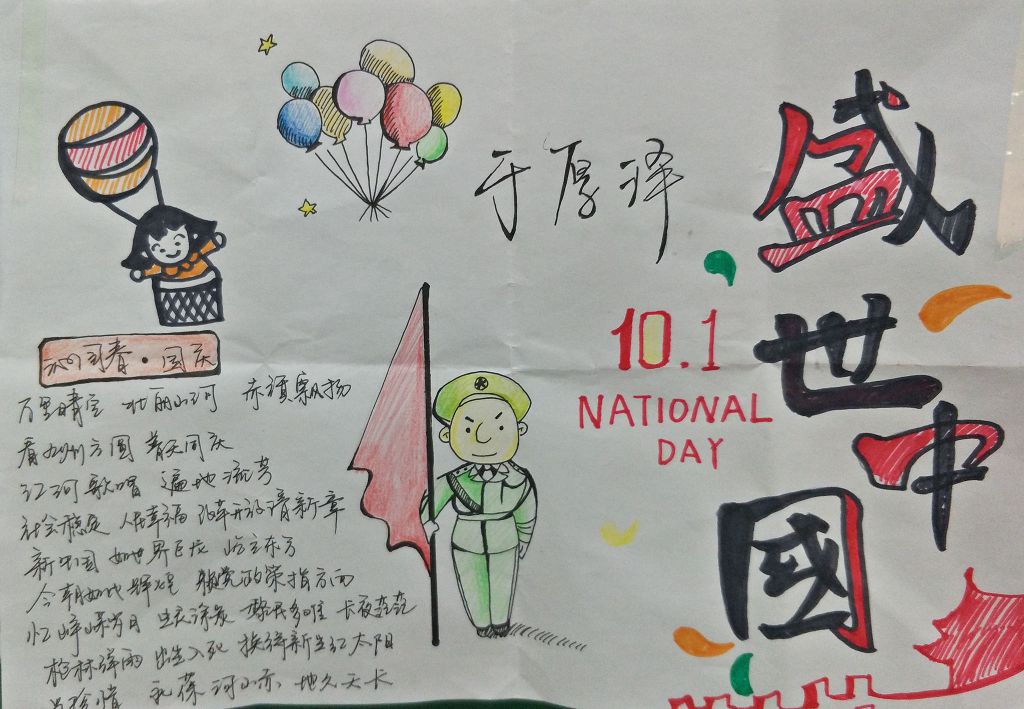 于厚泽
盛世中國
10.1
NATIONAL
DAY
沁园春·国庆
万里晴空 壮丽山河 赤旗飘扬
看九州方圆 普天同庆
江河歌唱 遍地流芳
社会稳定 人民幸福 改革开放谱新章
新中国 如世界巨龙 屹立东方
今朝如此辉煌 党的政策指方向
忆峥嵘岁月 生灵涂炭 黎民多难 长夜茫茫
枪林弹雨 出生入死 换得新生红太阳
珍惜 永葆 河山赤、地久天长